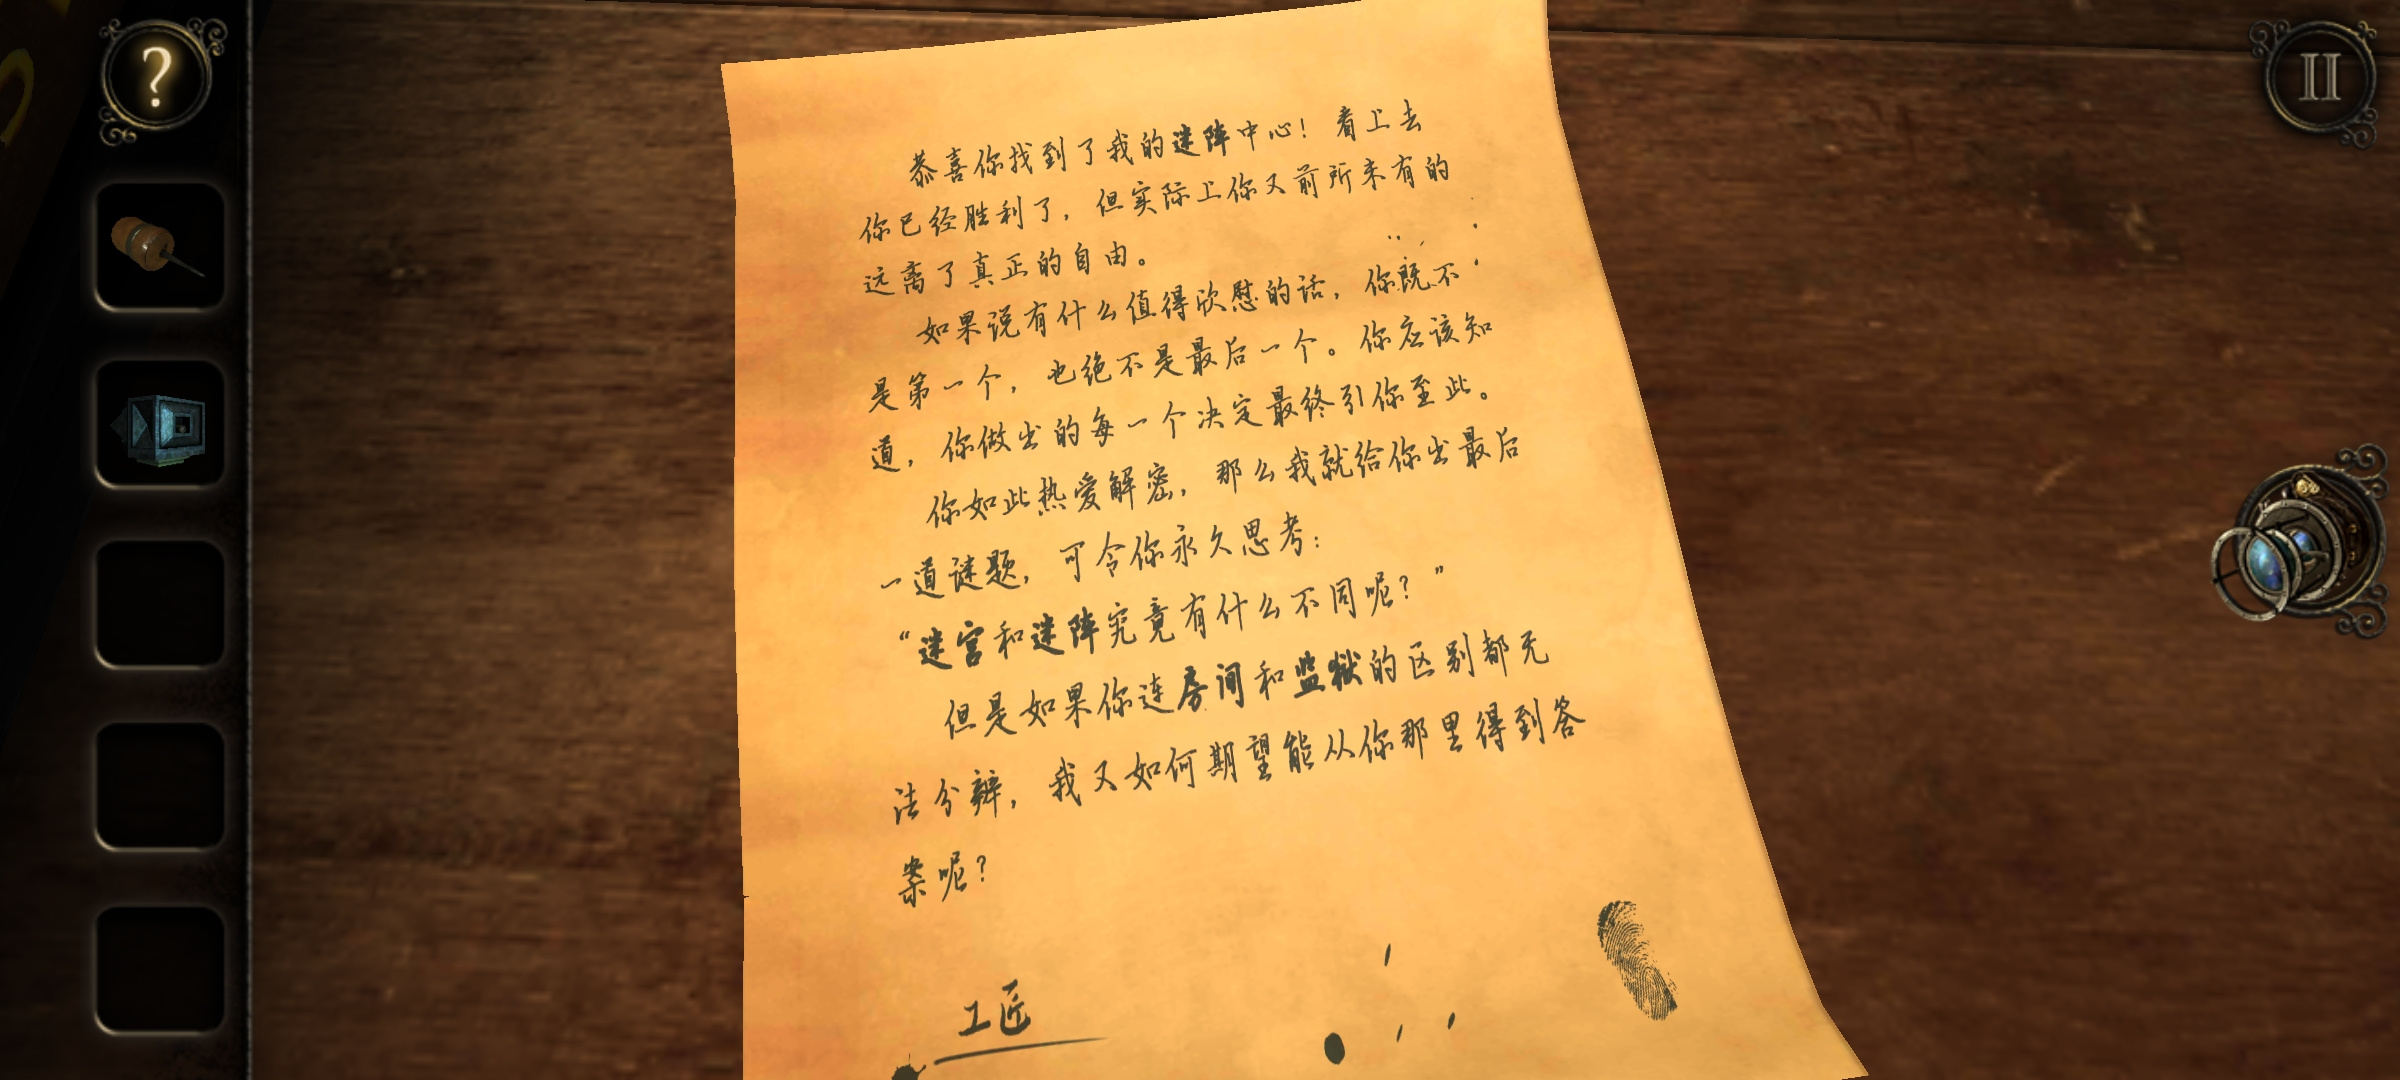 恭喜你找到了我的迷阵中心！看上去
你已经胜利了，但实际上你又前所未有的
远离了真正的自由。
如果说有什么值得欣慰的话，你既不
是第一个，也绝不是最后一个。你应该知
道，你做出的每一个决定最终引你至此。
你如此热爱解密，那么我就给你出最后
一道谜题，可令你永久思考：
“迷宫和迷阵究竟有什么不同呢？”
但是如果你连房间和监狱的区别都无
法分辨，我又如何期望能从你那里得到答
案呢？
工匠
?
II